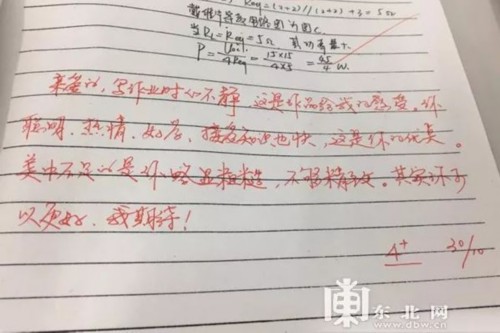 Req = (2+2)//(2+2) + 3 = 5Ω
戴维宁等效电路图为图c
当RL = Req = 5Ω 其功率最大.
P = Uoc²/4Req = 15×15/4×5 = 45/4 W.
亲爱的,写作业时心不静,这是作品给我的感受。你
聪明、热情、好学、接受知识也快,这是你的优点。
美中不足的是你略显粗糙,不够精致。其实你可
以更好,我期待!
4+ 30/10
东北网
www.dbw.cn